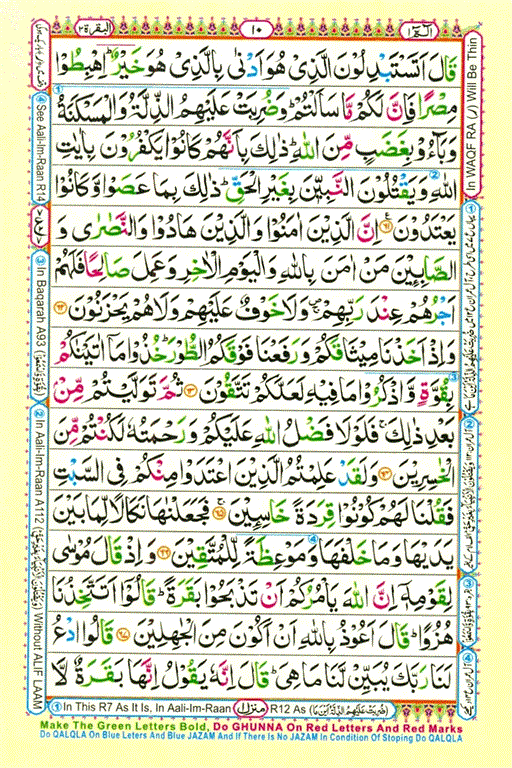 البقرة ٢
١٠
الٓمّٓ ١
قَالَ اَتَسْتَبْدِلُوْنَ الَّذِىْ هُوَ اَدْنٰى بِالَّذِىْ هُوَ خَيْرٌ ؕ اِهْبِطُوْا
مِصْرًا فَاِنَّ لَكُمْ مَّا سَاَلْتُمْ ؕ وَضُرِبَتْ عَلَيْهِمُ الذِّلَّةُ وَالْمَسْكَنَةُ
وَبَآءُوْ بِغَضَبٍ مِّنَ اللّٰهِ ؕ ذٰلِكَ بِاَنَّهُمْ كَانُوْا يَكْفُرُوْنَ بِاٰيٰتِ
اللّٰهِ وَيَقْتُلُوْنَ النَّبِيّٖنَ بِغَيْرِ الْحَقِّ ؕ ذٰلِكَ بِمَا عَصَوْا وَّكَانُوْا
يَعْتَدُوْنَ ﴿۶۱﴾ اِنَّ الَّذِيْنَ اٰمَنُوْا وَالَّذِيْنَ هَادُوْا وَالنَّصٰرٰى وَ
الصّٰبِـِٕيْنَ مَنْ اٰمَنَ بِاللّٰهِ وَالْيَوْمِ الْاٰخِرِ وَعَمِلَ صَالِحًا فَلَهُمْ
اَجْرُهُمْ عِنْدَ رَبِّهِمْ ۪ۚ وَلَا خَوْفٌ عَلَيْهِمْ وَلَا هُمْ يَحْزَنُوْنَ ﴿۶۲﴾
وَاِذْ اَخَذْنَا مِيْثَاقَكُمْ وَرَفَعْنَا فَوْقَكُمُ الطُّوْرَ ؕ خُذُوْا مَآ اٰتَيْنٰكُمْ
بِقُوَّةٍ وَّاذْكُرُوْا مَا فِيْهِ لَعَلَّكُمْ تَتَّقُوْنَ ﴿۶۳﴾ ثُمَّ تَوَلَّيْتُمْ مِّنْۢ
بَعْدِ ذٰلِكَ ۚ فَلَوْلَا فَضْلُ اللّٰهِ عَلَيْكُمْ وَرَحْمَتُهٗ لَكُنْتُمْ مِّنَ
الْخٰسِرِيْنَ ﴿۶۴﴾ وَلَقَدْ عَلِمْتُمُ الَّذِيْنَ اعْتَدَوْا مِنْكُمْ فِى السَّبْتِ
فَقُلْنَا لَهُمْ كُوْنُوْا قِرَدَةً خٰسِـِٕيْنَ ﴿۶۵﴾ ۚ فَجَعَلْنٰهَا نَكَالًا لِّمَا بَيْنَ
يَدَيْهَا وَمَا خَلْفَهَا وَمَوْعِظَةً لِّلْمُتَّقِيْنَ ﴿۶۶﴾ وَاِذْ قَالَ مُوْسٰى
لِقَوْمِهٖٓ اِنَّ اللّٰهَ يَاْمُرُكُمْ اَنْ تَذْبَحُوْا بَقَرَةً ؕ قَالُوْٓا اَتَتَّخِذُنَا
هُزُوًا ؕ قَالَ اَعُوْذُ بِاللّٰهِ اَنْ اَكُوْنَ مِنَ الْجٰهِلِيْنَ ﴿۶۷﴾ قَالُوا ادْعُ
لَنَا رَبَّكَ يُبَيِّنْ لَّنَا مَا هِىَ ؕ قَالَ اِنَّهٗ يَقُوْلُ اِنَّهَا بَقَرَةٌ لَّا
① In This R7 As It Is, In Aali-Im-Raan منزل ١ R12 As (ضُرِبَتْ عَلَيْهِمُ الذِّلَّةُ اَيْنَ مَا)
Make The Green Letters Bold, Do GHUNNA On Red Letters And Red Marks
Do QALQLA On Blue Leters And Blue JAZAM And If There Is No JAZAM In Condition Of Stoping Do QALQLA
In WAQF RA (ر) Will Be Thin
④ See Aali-Im-Raan R14
③ In Baqarah A93
② In Aali-Im-Raan A112 Without ALIF LAAM